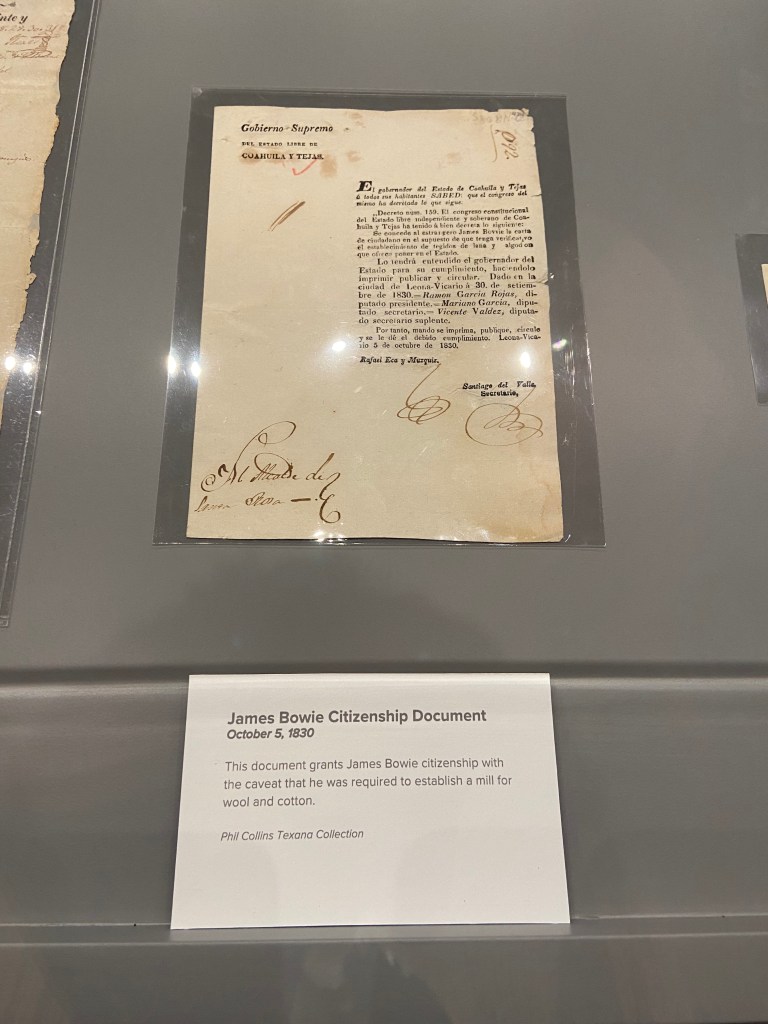 nte y
Gobierno Supremo
DEL ESTADO LIBRE DE
COAHUILA Y TEJAS.
El gobernador del Estado de Coahuila y Tejas
á todos sus habitantes SABED: que el congreso del
mismo ha decretado lo que sigue.
„Decreto núm. 159. El congreso constitucional
del Estado libre independiente y soberano de Coa-
huila y Tejas ha tenido á bien decretar lo siguiente:
Se concede al estrangero James Bowie la carta
de ciudadano en el supuesto de que tenga
el establecimiento de tegidos de lana y algodon
que ofrece poner en el Estado.
Lo tendrá entendido el gobernador del
Estado para su cumplimiento, haciendolo
imprimir publicar y circular. Dado en la
ciudad de Leona-Vicario á 30. de setiem-
bre de 1830.—Ramon Garcia Rojas, di-
putado presidente.—Mariano Garcia, dipu-
tado secretario.—Vicente Valdez, diputa-
do secretario suplente.
Por tanto, mando se imprima, publique, circule
y se le dé el debido cumplimiento. Leona-Vica-
rio 5 de octubre de 1830.
Rafael Eca y Muzquiz.
Santiago del Valle,
Secretario,
Al Alcalde de
James Bowie Citizenship Document
October 5, 1830
This document grants James Bowie citizenship with
the caveat that he was required to establish a mill for
wool and cotton.
Phil Collins Texana Collection